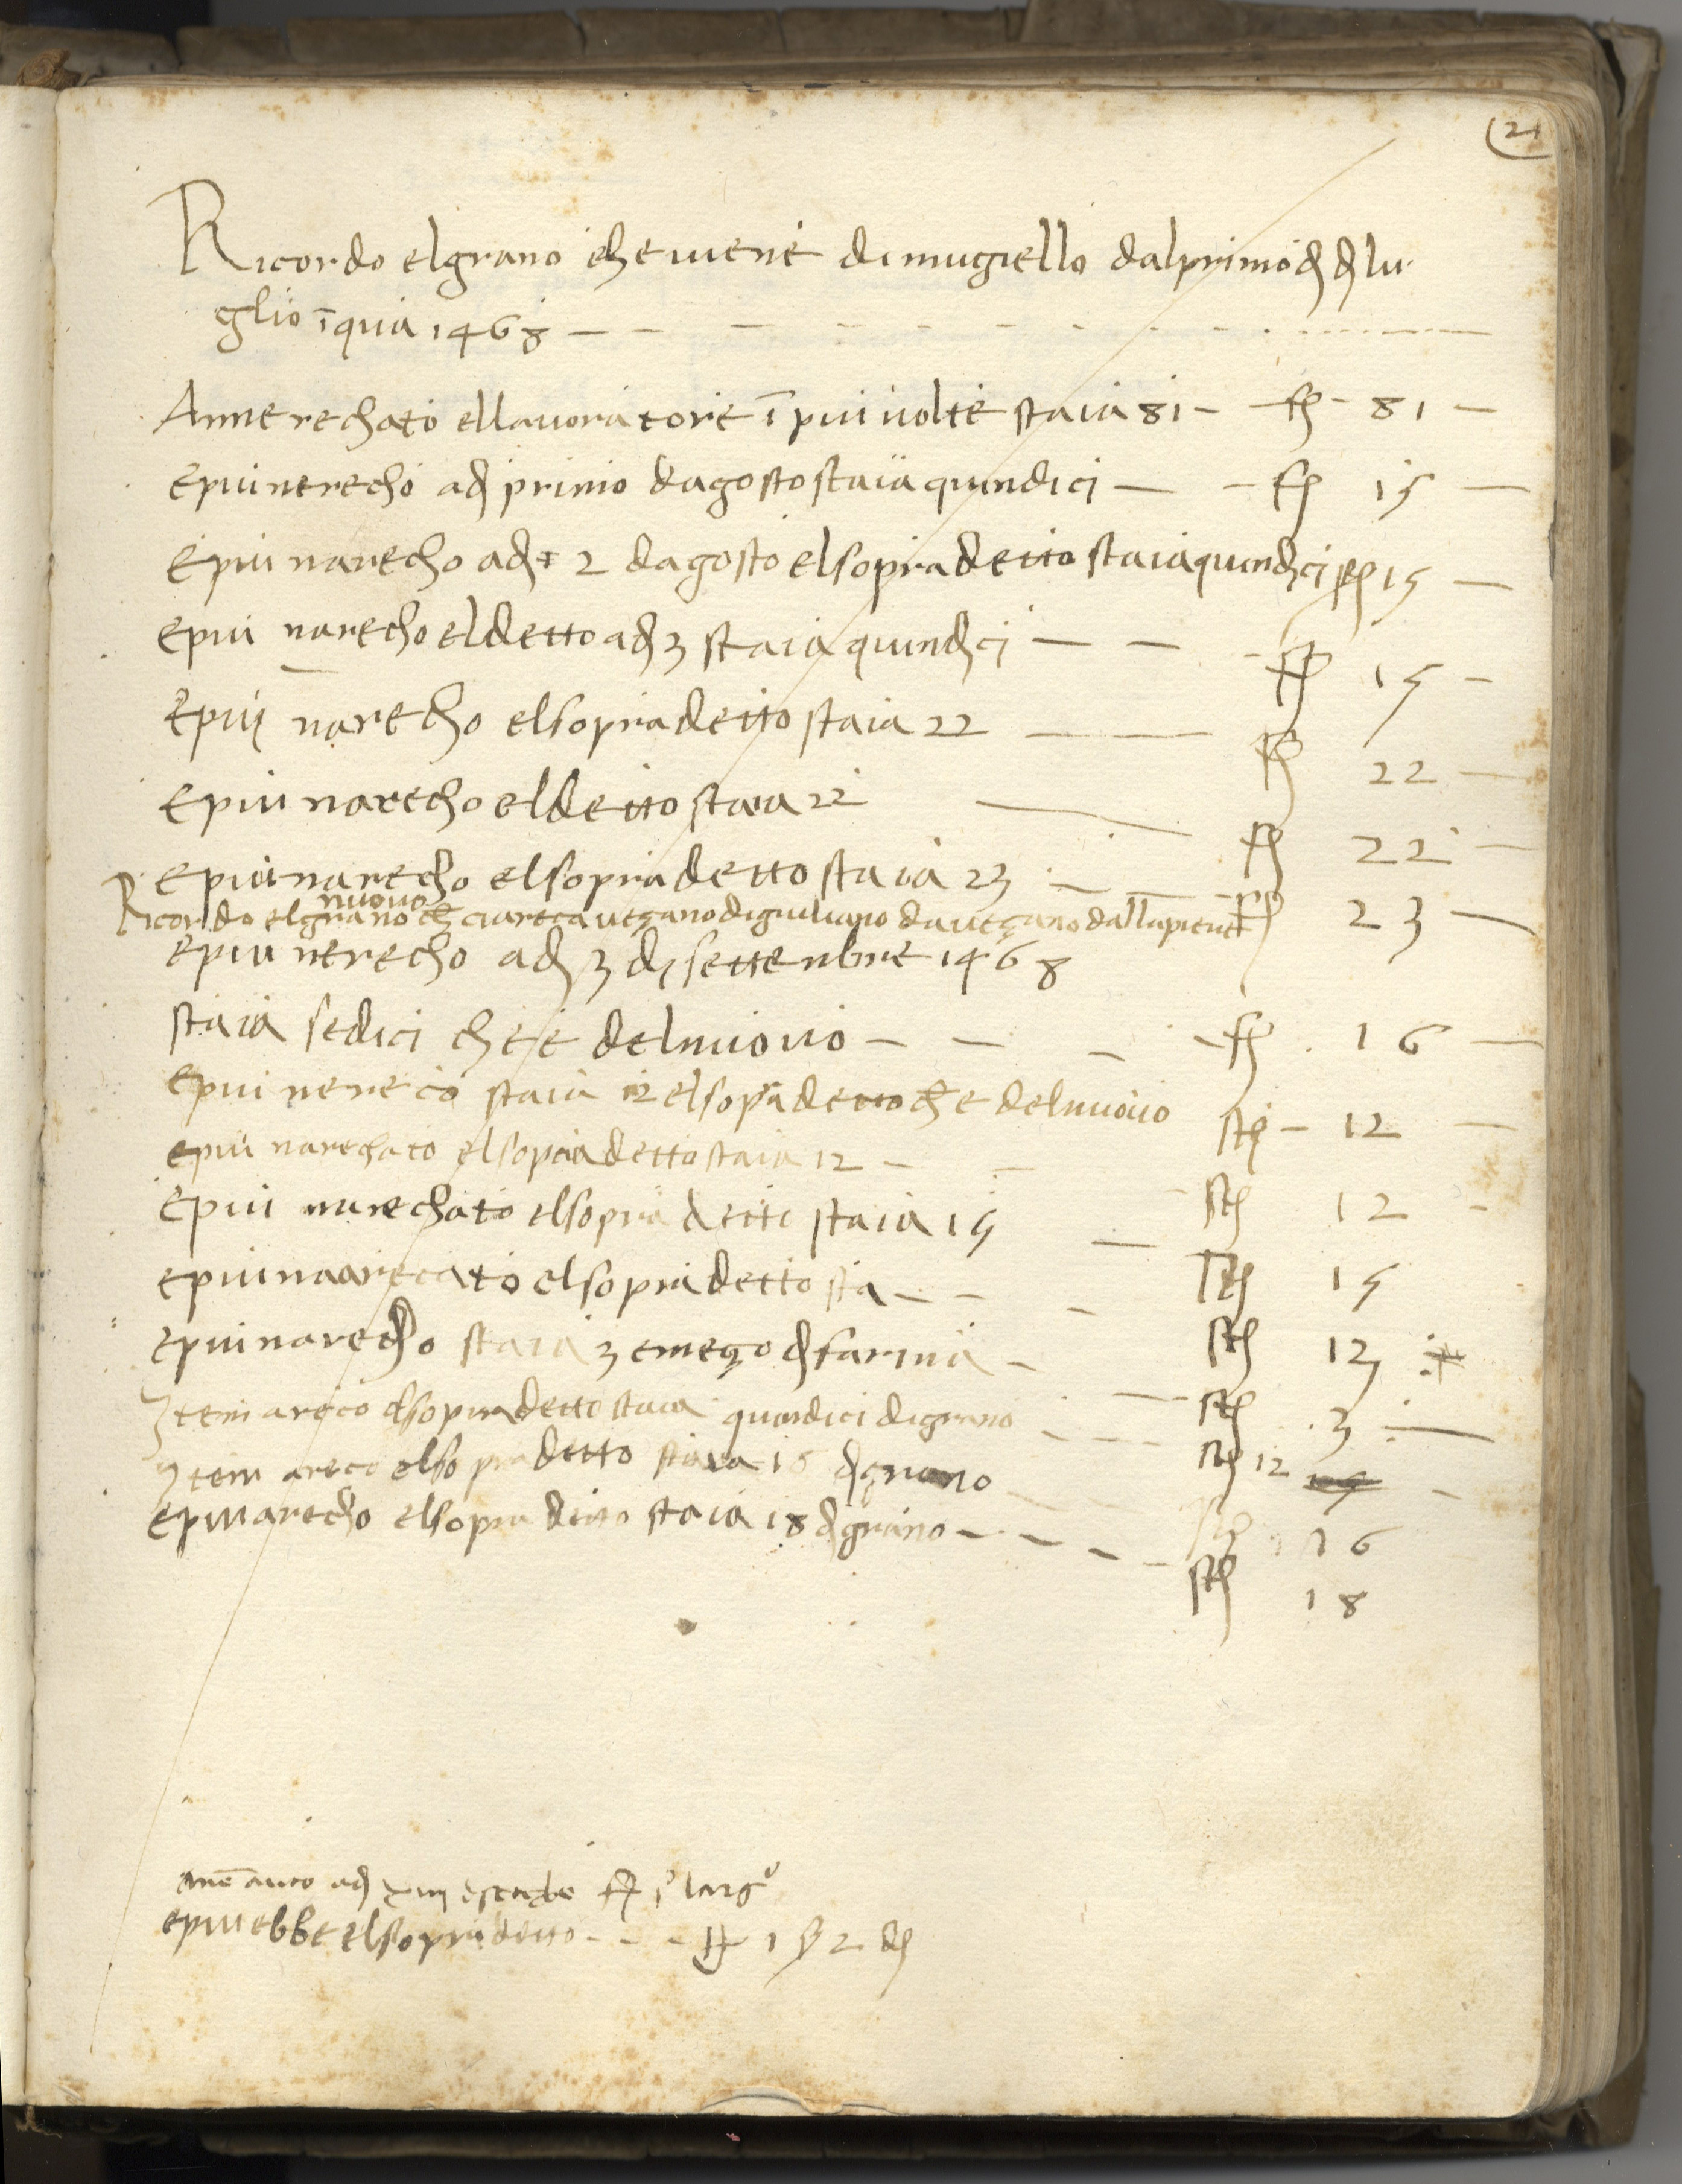 21
Ricordo elgrano che viene dimugiello dalprimo dj dj lu
glio ī qua 1468
Anne rechato ellavoratore ī piu volte staia 81 — st 81
epiu nerecho adj primo dagosto staia quindici — st 15
E piu narecho adj 2 dagosto elsopradetto staia quindjci st 15
epiu narecho eldetto adj 3 staia quindjci — st 15
Epiu narecho elsopradetto staia 22 — st 22
Epiu narecho eldetto staia 22 — st 22
epiu narecho elsopradetto staia 23 — st 23
nuovo
Ricordo elgrano che ciareca vegano digiuliano davegano
epiu nerecho adj 3 dj settenbre 1468
staia sedici che e delnuovo — st 16
Epiu nereco staia 12 elsopradetto che delnuovo st 12
epiu narechato elsopradetto staia 12 — st 12
Epiu narechato elsopradetto staia 15 — st 15
epiu naarecato elsopradetto sta — st 12
epiu narecho staia 3 emezo dj farina — st 3
Item areco elsopradetto staia quindici digrano st 12
Item areco elsopradetto staia 16 dj grano 16
epiu narecho elsopradetto staia 18 dj grano — st 18
ane auto adj
epiu ebbe elsopradetto